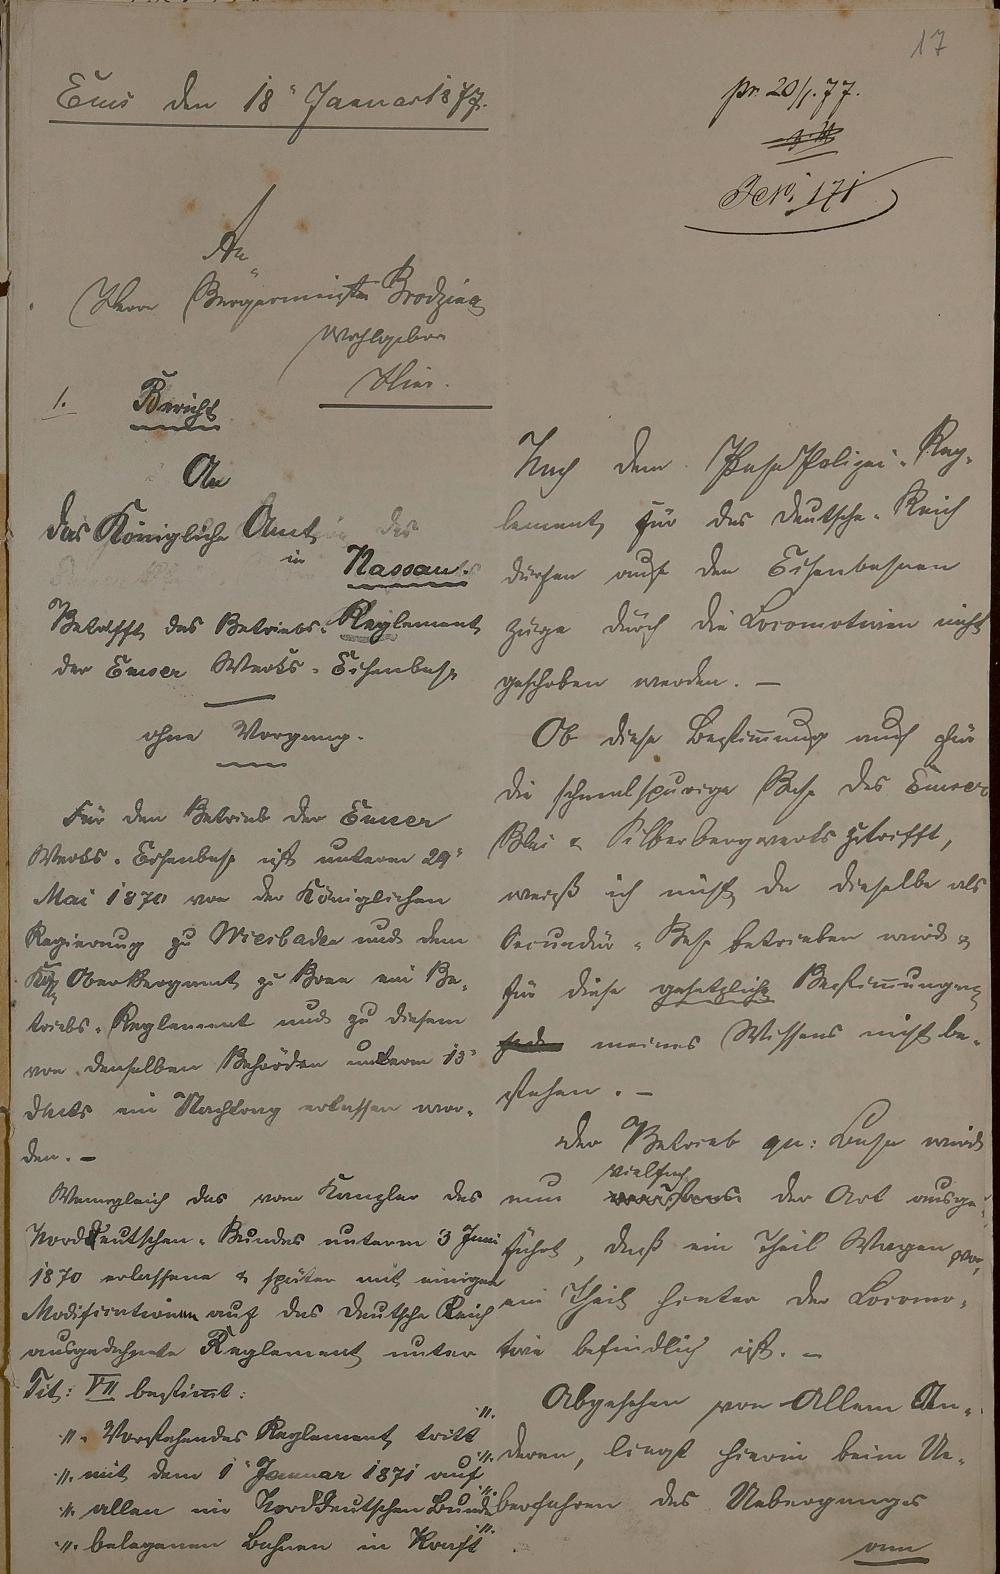 17
Ems den 18ᵗ Januar 1877.
pr. 20/1. 77.
J.N. 171
An
Herrn Bergermeister Brodzina
Wohlgeboren
Hier.
1. Bericht
An
das Königliche Amt
in Nassau.
Betrifft das Betriebs-Reglement
der Emser Werks-Eisenbahn
ohne Vorgang.
Für den Betrieb der Emser
Werks-Eisenbahn ist unterm 29ᵗ
Mai 1870 von der Königlichen
Regierung zu Wiesbaden und dem
Kgl. Oberbergamt zu Bonn ein Be-
triebs-Reglement und zu diesem
von denselben Behörden unterm 13ᵗ
ein Nachtrag erlassen wor-
den. –
Wenngleich das vom Kanzler des
Norddeutschen-Bundes unterm 3 Juni
1870 erlassene & später mit einigen
Modificationen auf das deutsche Reich
ausgedehnte Reglement unter
Tit: VII bestimt:
". Vorstehendes Reglement tritt ".
". mit dem 1ᵗ Januar 1871 auf ".
". allen im Norddeutschen Bunde ".
". belegenen Bahnen in Kraft ".
Nach dem Bahn Polizei-Reg-
lement für das deutsche-Reich
dürfen auf den Eisenbahnen
Züge durch die Locomotiven nicht
geschoben werden. –
Ob diese Bestimung auch für
die schmalspurige Bahn des Emser
Blei & Silberbergwerks zutrifft,
weiß ich nicht, da dieselbe als
Secundär-Bahn betrieben wird &
für diese gesetzliche Bestimungen
meines Wissens nicht be-
stehen. –
Der Betrieb qu: Bahn wird
nun vielfach der Art ausge-
führt, daß ein Theil Wagen vor,
ein Theil hinter der Locomo-
tive befindlich ist. –
Abgesehen von Allem An-
deren, liegt hierin beim Ue-
berfahren des Ueberganges